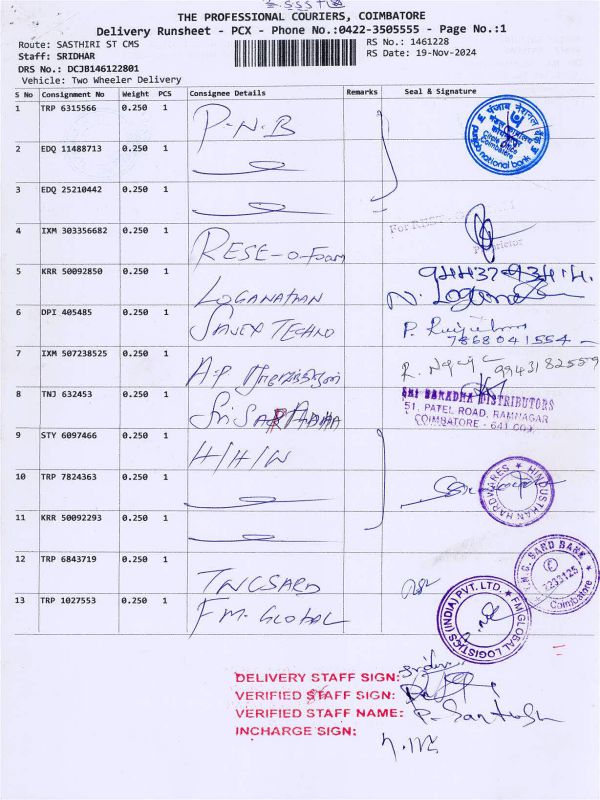 THE PROFESSIONAL COURIERS, COIMBATORE
Delivery Runsheet - PCX - Phone No.:0422-3505555 - Page No.:1
Route: SASTHIRI ST CMS
RS No.: 1461228
Staff: SRIDHAR
RS Date: 19-Nov-2024
DRS No.: DCJB146122801
Vehicle: Two Wheeler Delivery
S No Consignment No Weight PCS Consignee Details Remarks Seal & Signature
1 TRP 6315566 0.250 1 P-N-B
पंजाब नैशनल बैंक
Circle Office
Coimbatore
punjab national bank
2 EDQ 11488713 0.250 1
3 EDQ 25210442 0.250 1
For
Proprietor
4 IXM 303356682 0.250 1 RESE-O-Foam
5 KRR 50092850 0.250 1 LOGANATHAN
6 DPI 405485 0.250 1 TECHNO
7868041554
7 IXM 507238525 0.250 1 A.P
9943182559
8 TNJ 632453 0.250 1 Sri SARADHA
SRI SARADHA DISTRIBUTORS
51, PATEL ROAD, RAMNAGAR
COIMBATORE - 641 009.
9 STY 6097466 0.250 1 H/H/W
10 TRP 7824363 0.250 1
HINDUSTHAN HARDWARES
11 KRR 50092293 0.250 1
12 TRP 6843719 0.250 1 TNCSARD
SARD BANK
2233125
Coimbatore
13 TRP 1027553 0.250 1 FM. GLOBAL
FM GLOBAL LOGISTICS (INDIA) PVT. LTD.
DELIVERY STAFF SIGN: Sridhar
VERIFIED STAFF SIGN:
VERIFIED STAFF NAME: P. Santhosh
INCHARGE SIGN: